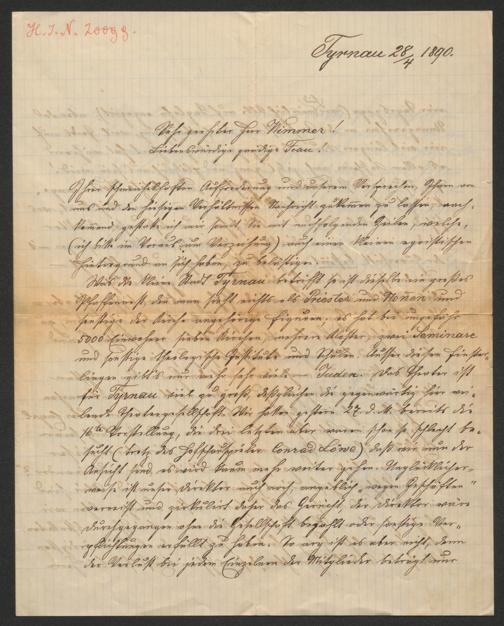 H. I. N. 20099.
Tyrnau 28/4 1890.
Sehr geehrter Herr Wimmer!
Liebenswürdige gnädige Frau!
Ihrer schmeichelhaften Aufforderung und unserem Versprechen, Ihnen von
uns und den hiesigen Verhältnissen Nachricht zukommen zu lassen, nach-
kommend, gestatte ich mir hiermit Sie mit nachfolgenden Zeilen, welche,
(ich bitte im Voraus um Verzeihung) auch einen kleinen egoistischen
Hintergrund an sich haben, zu belästigen.
Was die kleine Stadt Tyrnau betrifft so ist dieselbe ein großes
Pfaffennest, da man hier nichts als Priester und Nonnen und
sonstige der Kirche angehörige Figuren; es hat bei ungefähr
5000 Einwohner sieben Kirchen, mehrere Klöster, zwei Seminare
und sonstige theologische Institute und Schulen. Außer diesen Finster-
lingen gibt's nur mehr sehr viele – Juden. Das Theater ist
für Tyrnau viel zu groß, desgleichen die gegenwärtig hier wei-
lende Theatergesellschaft. Wir hatten gestern 27. d. M. bereits die
16te Vorstellung, die drei letzten aber waren schon so schlecht be-
sucht (trotz des Hofschauspieler Conrad Löwe) daß wir nun der
Ansicht sind es wird kaum mehr weiter gehen. Unglücklicher-
weise ist unser Direktor auch noch, angeblich "wegen Geschäften"
verreist und zirkulirt daher das Gerücht, der Direktor wäre
durchgegangen ohne die Gesellschaft bezahlt oder sonstige Ver-
pflichtungen erfüllt zu haben. So arg ist es aber nicht, denn
der Verlust bei jedem Einzelnen der Mitglieder beträgt nur